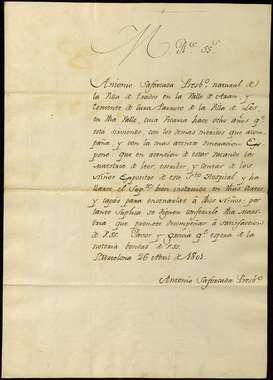 M. Ys. Ss.
Antonio Saforcada Presb.º natural de
la Villa de en la Valle de Aran, y
teniente de Cura Parroco de la Villa de Lés
en dha Valle, cuia Vicaria hace ocho años q.e
esta sirviendo con los demas meritos que acom-
paña y con la mas atenta veneracion Ex-
pone: que en atencion á estar vacando la
maestria de leer, escribir y contar de los
Niños Expositos de este Hospital y ha-
llarse el Sup.te bien instruido en dhas Artes,
y capás para enseñarlas á dhos Niños; por
tanto Suplica se dignen conferirle dha Maes-
tria que promete desempeñar á satisfaccion
de V.Ss. favor y gracia q.e espera de la
notoria bondad de V.Ss.
Barcelona 26 Abril de 1801.
Antonio Saforcada Presb.º